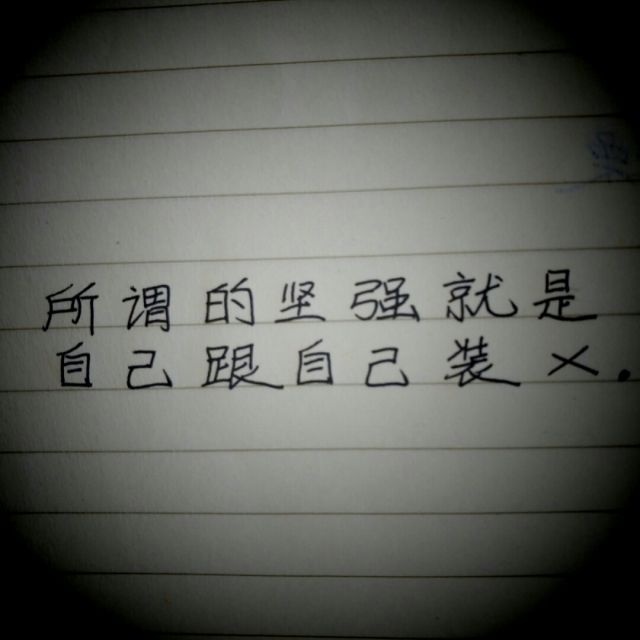 所谓的坚强就是
自己跟自己装×.